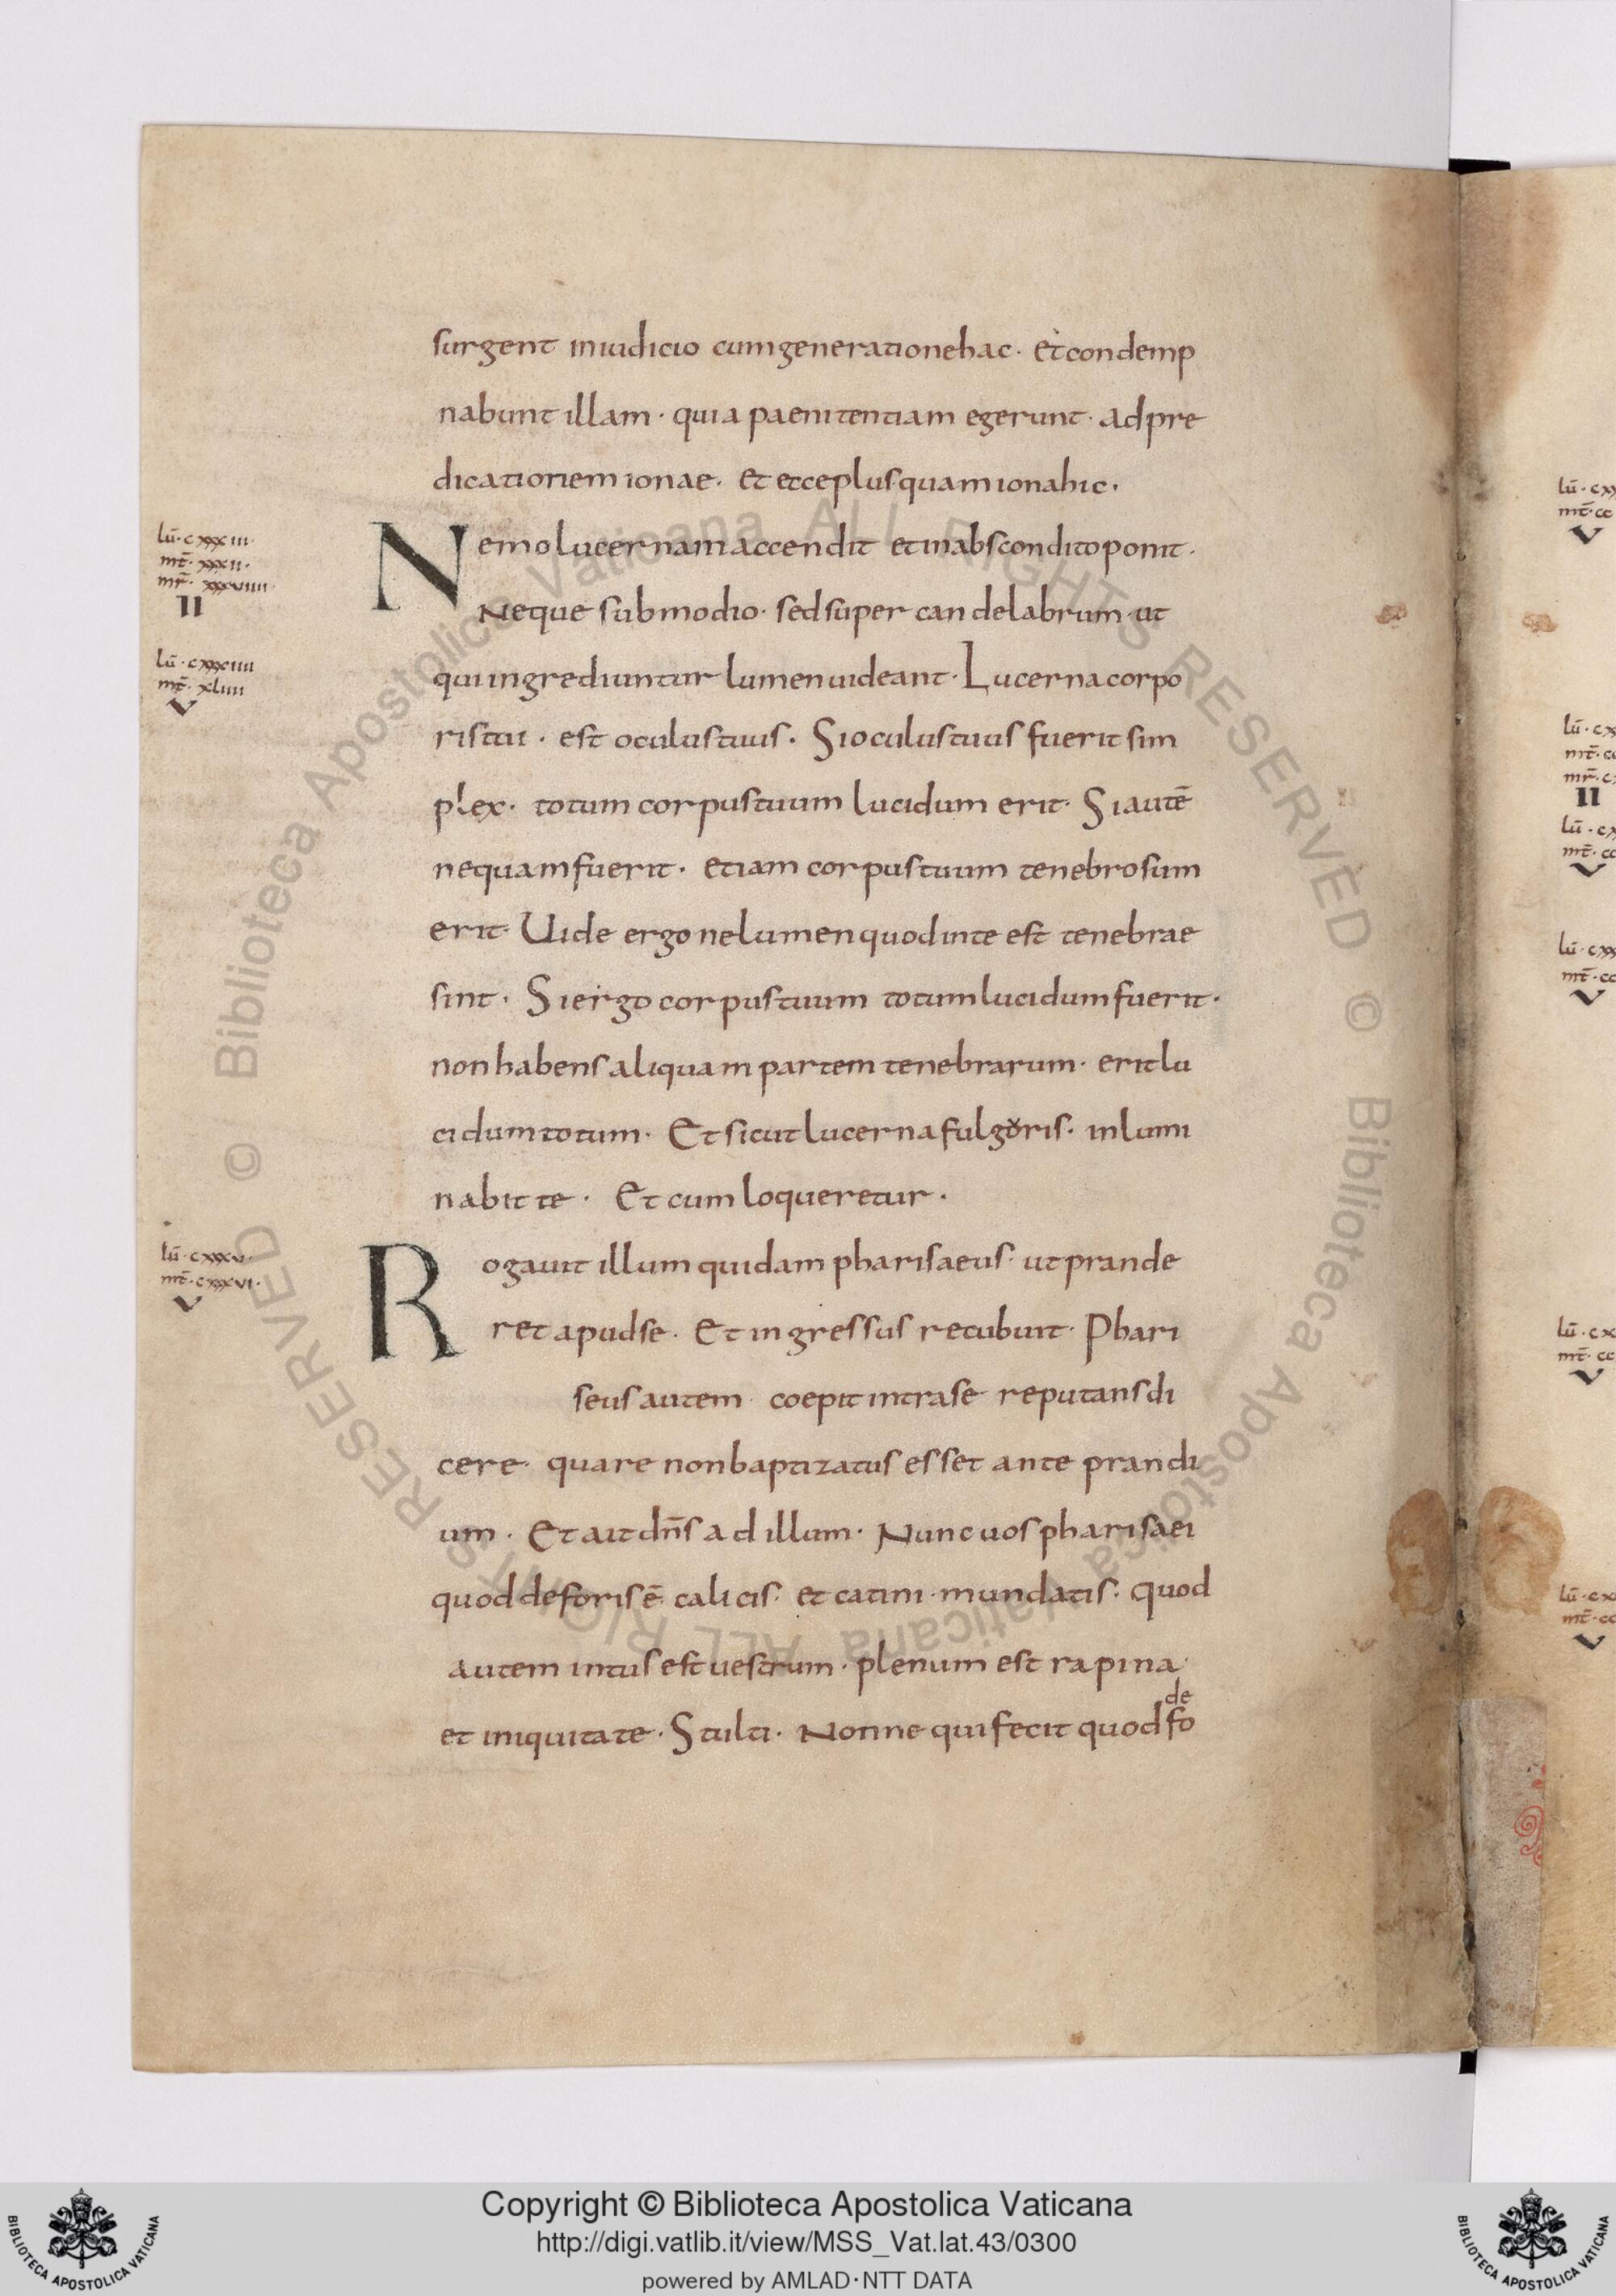 surgent iniudicio cumgenerationehac · etcondemp
nabunt illam · quia paenitentiam egerunt · adpre
dicationem ionae · et ecceplusquamionahic ·
lū · cxxxiii ·
mt̄ · xxxii ·
mr̄ · xxxviiii ·
II
Nemolucernamaccendit etinabsconditoponit ·
Neque submodio · sedsuper candelabrum · ut
lū · cxxxiiii
mt̄ · xliii
V
quiingrediuntur lumenuideant · Lucernacorpo
ristui · est oculustuus · Sioculustuus fuerit sim
plex · totum corpustuum lucidum erit · Siautē
nequamfuerit · etiam corpustuum tenebrosum
erit · Uide ergo nelumenquodinte est tenebrae
sint · Siergo corpustuum totumlucidumfuerit ·
nonhabensaliquampartem tenebrarum · eritlu
cidumtotum · Etsicutlucernafulgoris · inlumi
nabit te · Et cum loqueretur ·
lū · cxxxv ·
mt̄ · cxxxvi ·
V
Rogauit illum quidam pharisaeus · utprande
ret apudse · Et ingressus recubuit · Phari
seusautem · coepit intrase reputansdi
cere · quare nonbaptizatus esset ante prandi
um · Et ait dn̄s ad illum · Nunc uos pharisaei
quoddeforisē calicis · et catini · mundatis · quod
autem intus est uestrum · plenum est rapina ·
de
et iniquitate · Stulti · Nonne quifecit quodfo
lū · cx
mt̄ · cc
V
lū · cx
mt̄ · cc
mr̄ · c
II
lū · cx
mt̄ · cc
V
lū · cxx
mt̄ · cc
V
lū · cx
mt̄ · cc
V
lū · cx
mt̄ · cc
V
© Biblioteca Apostolica Vaticana ALL RIGHTS RESERVED © Biblioteca Apostolica Vaticana ALL RIGHTS RESERVED
Copyright © Biblioteca Apostolica Vaticana
http://digi.vatlib.it/view/MSS_Vat.lat.43/0300
powered by AMLAD·NTT DATA
BIBLIOTECA APOSTOLICA VATICANA
BIBLIOTECA APOSTOLICA VATICANA